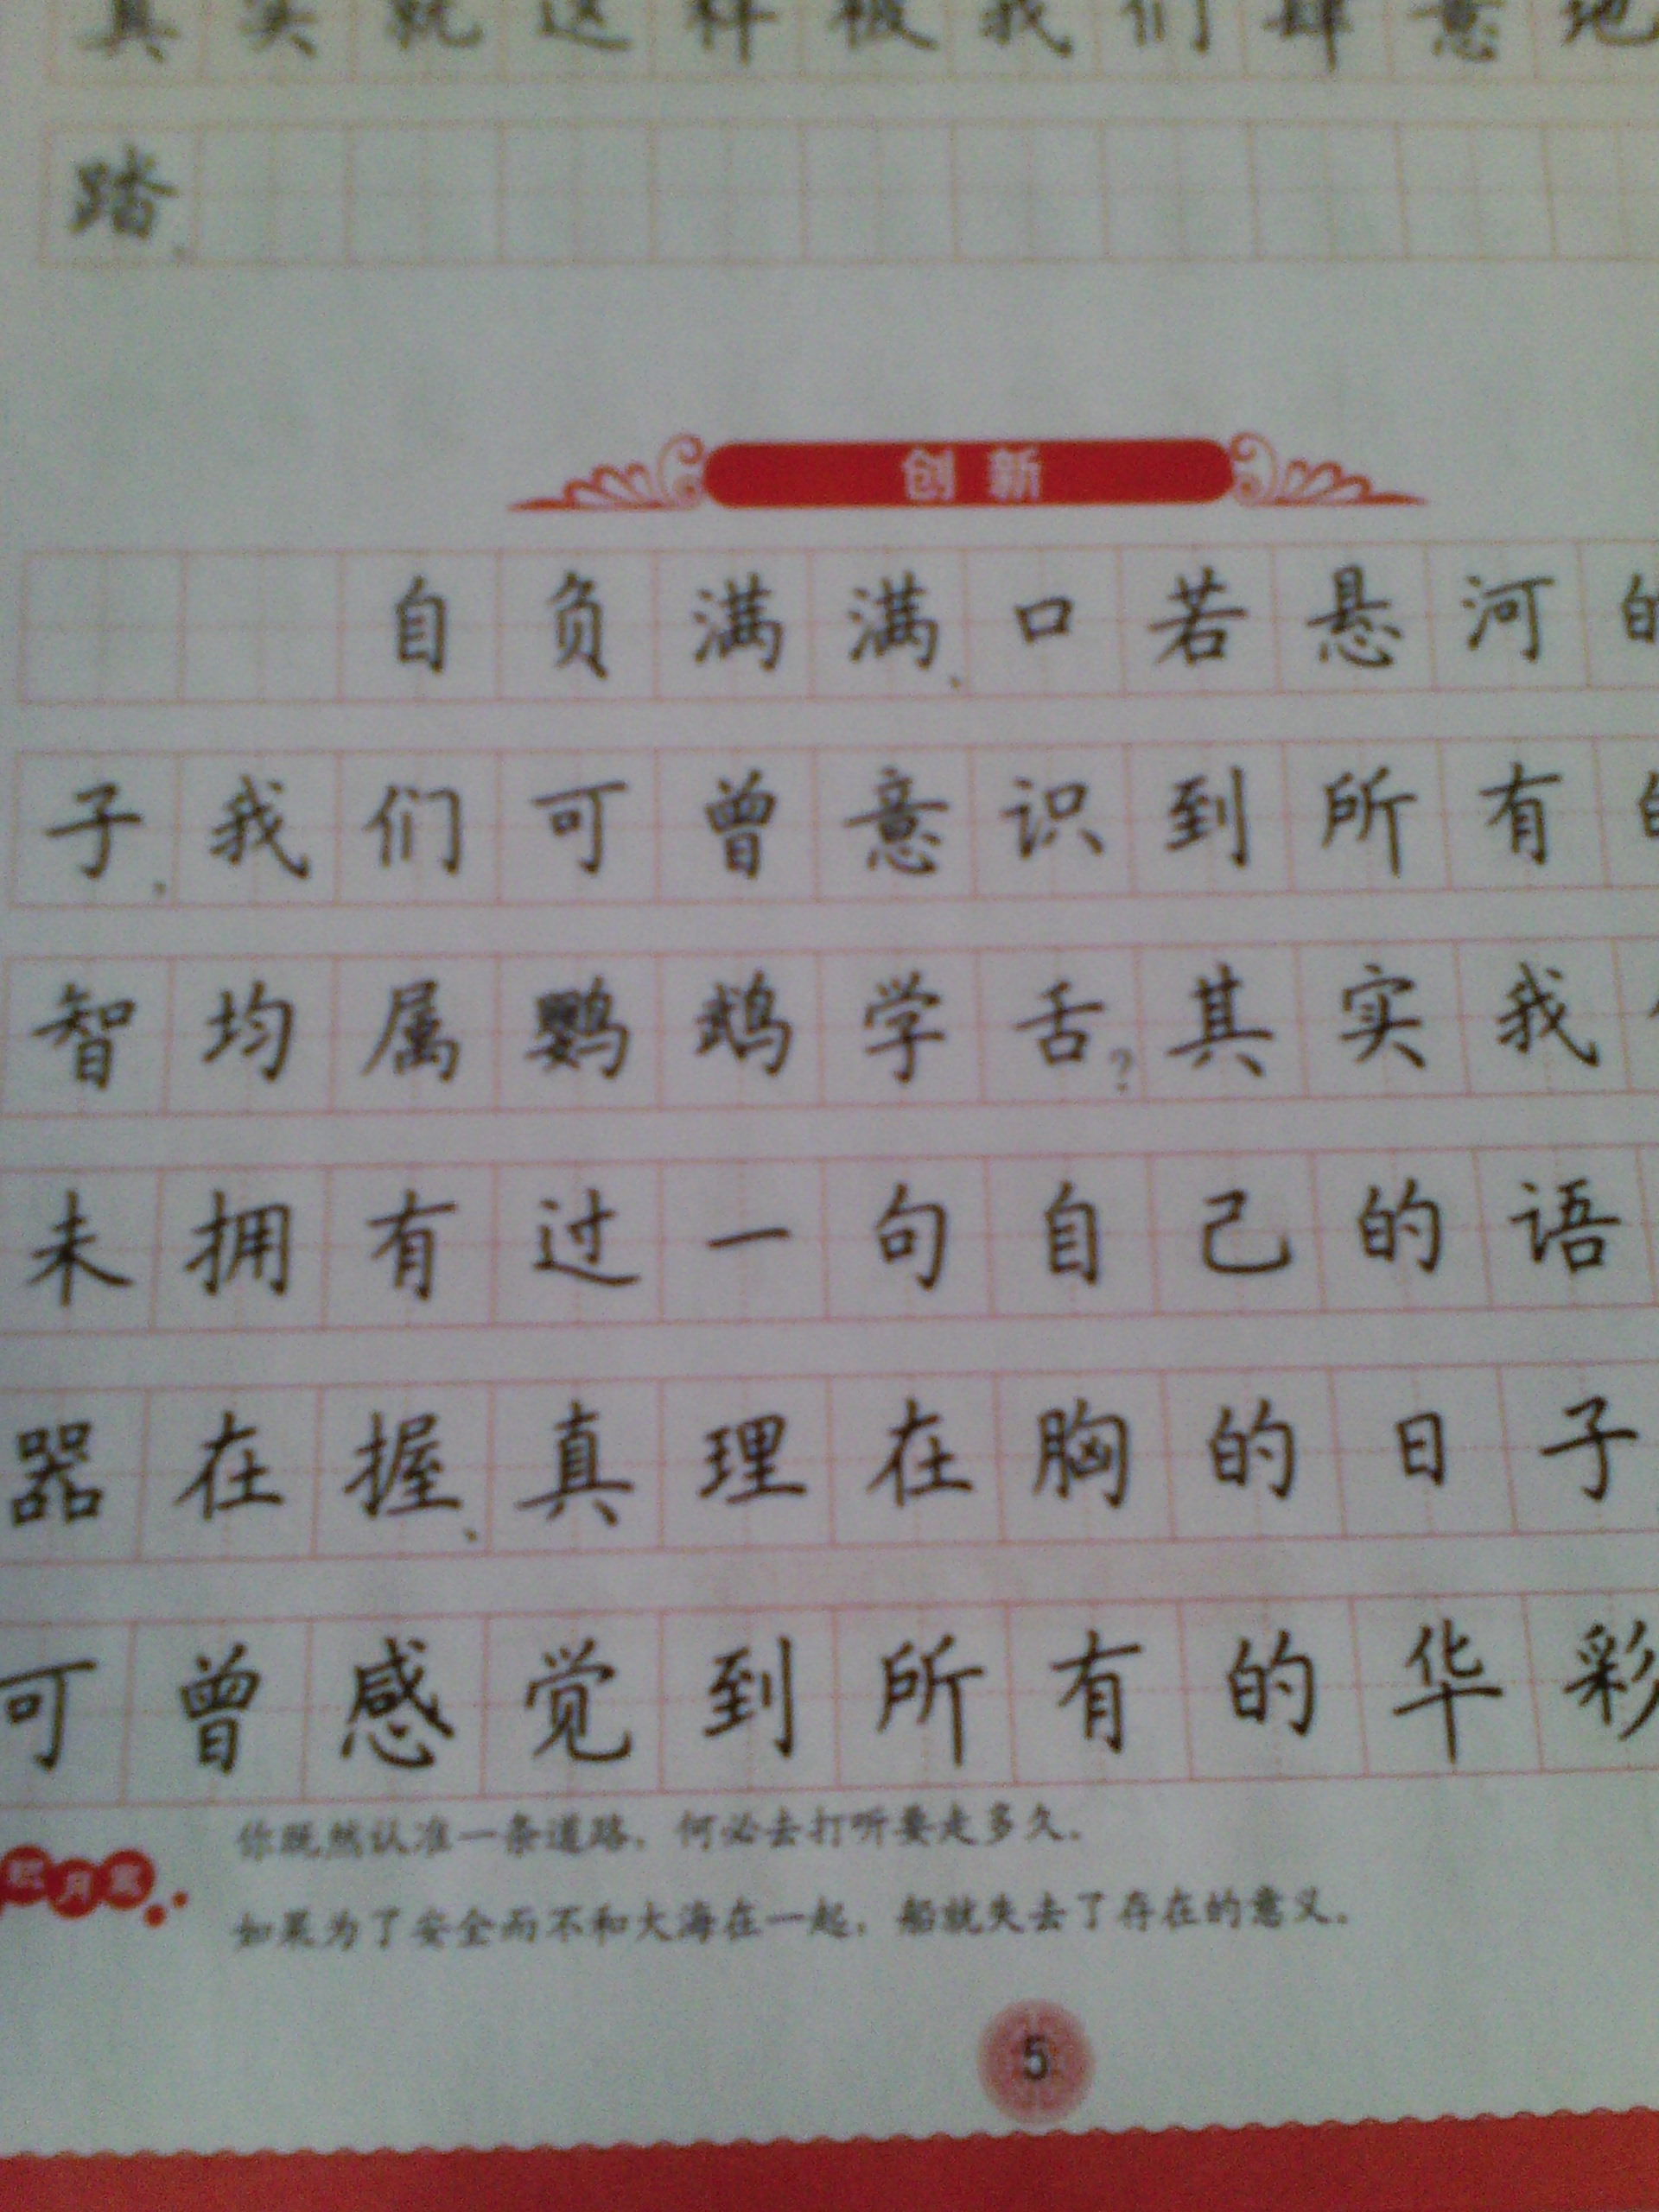 真实就这样被我们肆意地
踏。
创新
自负满满、口若悬河的
子,我们可曾意识到所有的
智均属鹦鹉学舌?其实我
未拥有过一句自己的语
器在握、真理在胸的日子
可曾感觉到所有的华彩
你既然认准一条道路,何必去打听要走多久。
如果为了安全而不和大海在一起,船就失去了存在的意义。
5